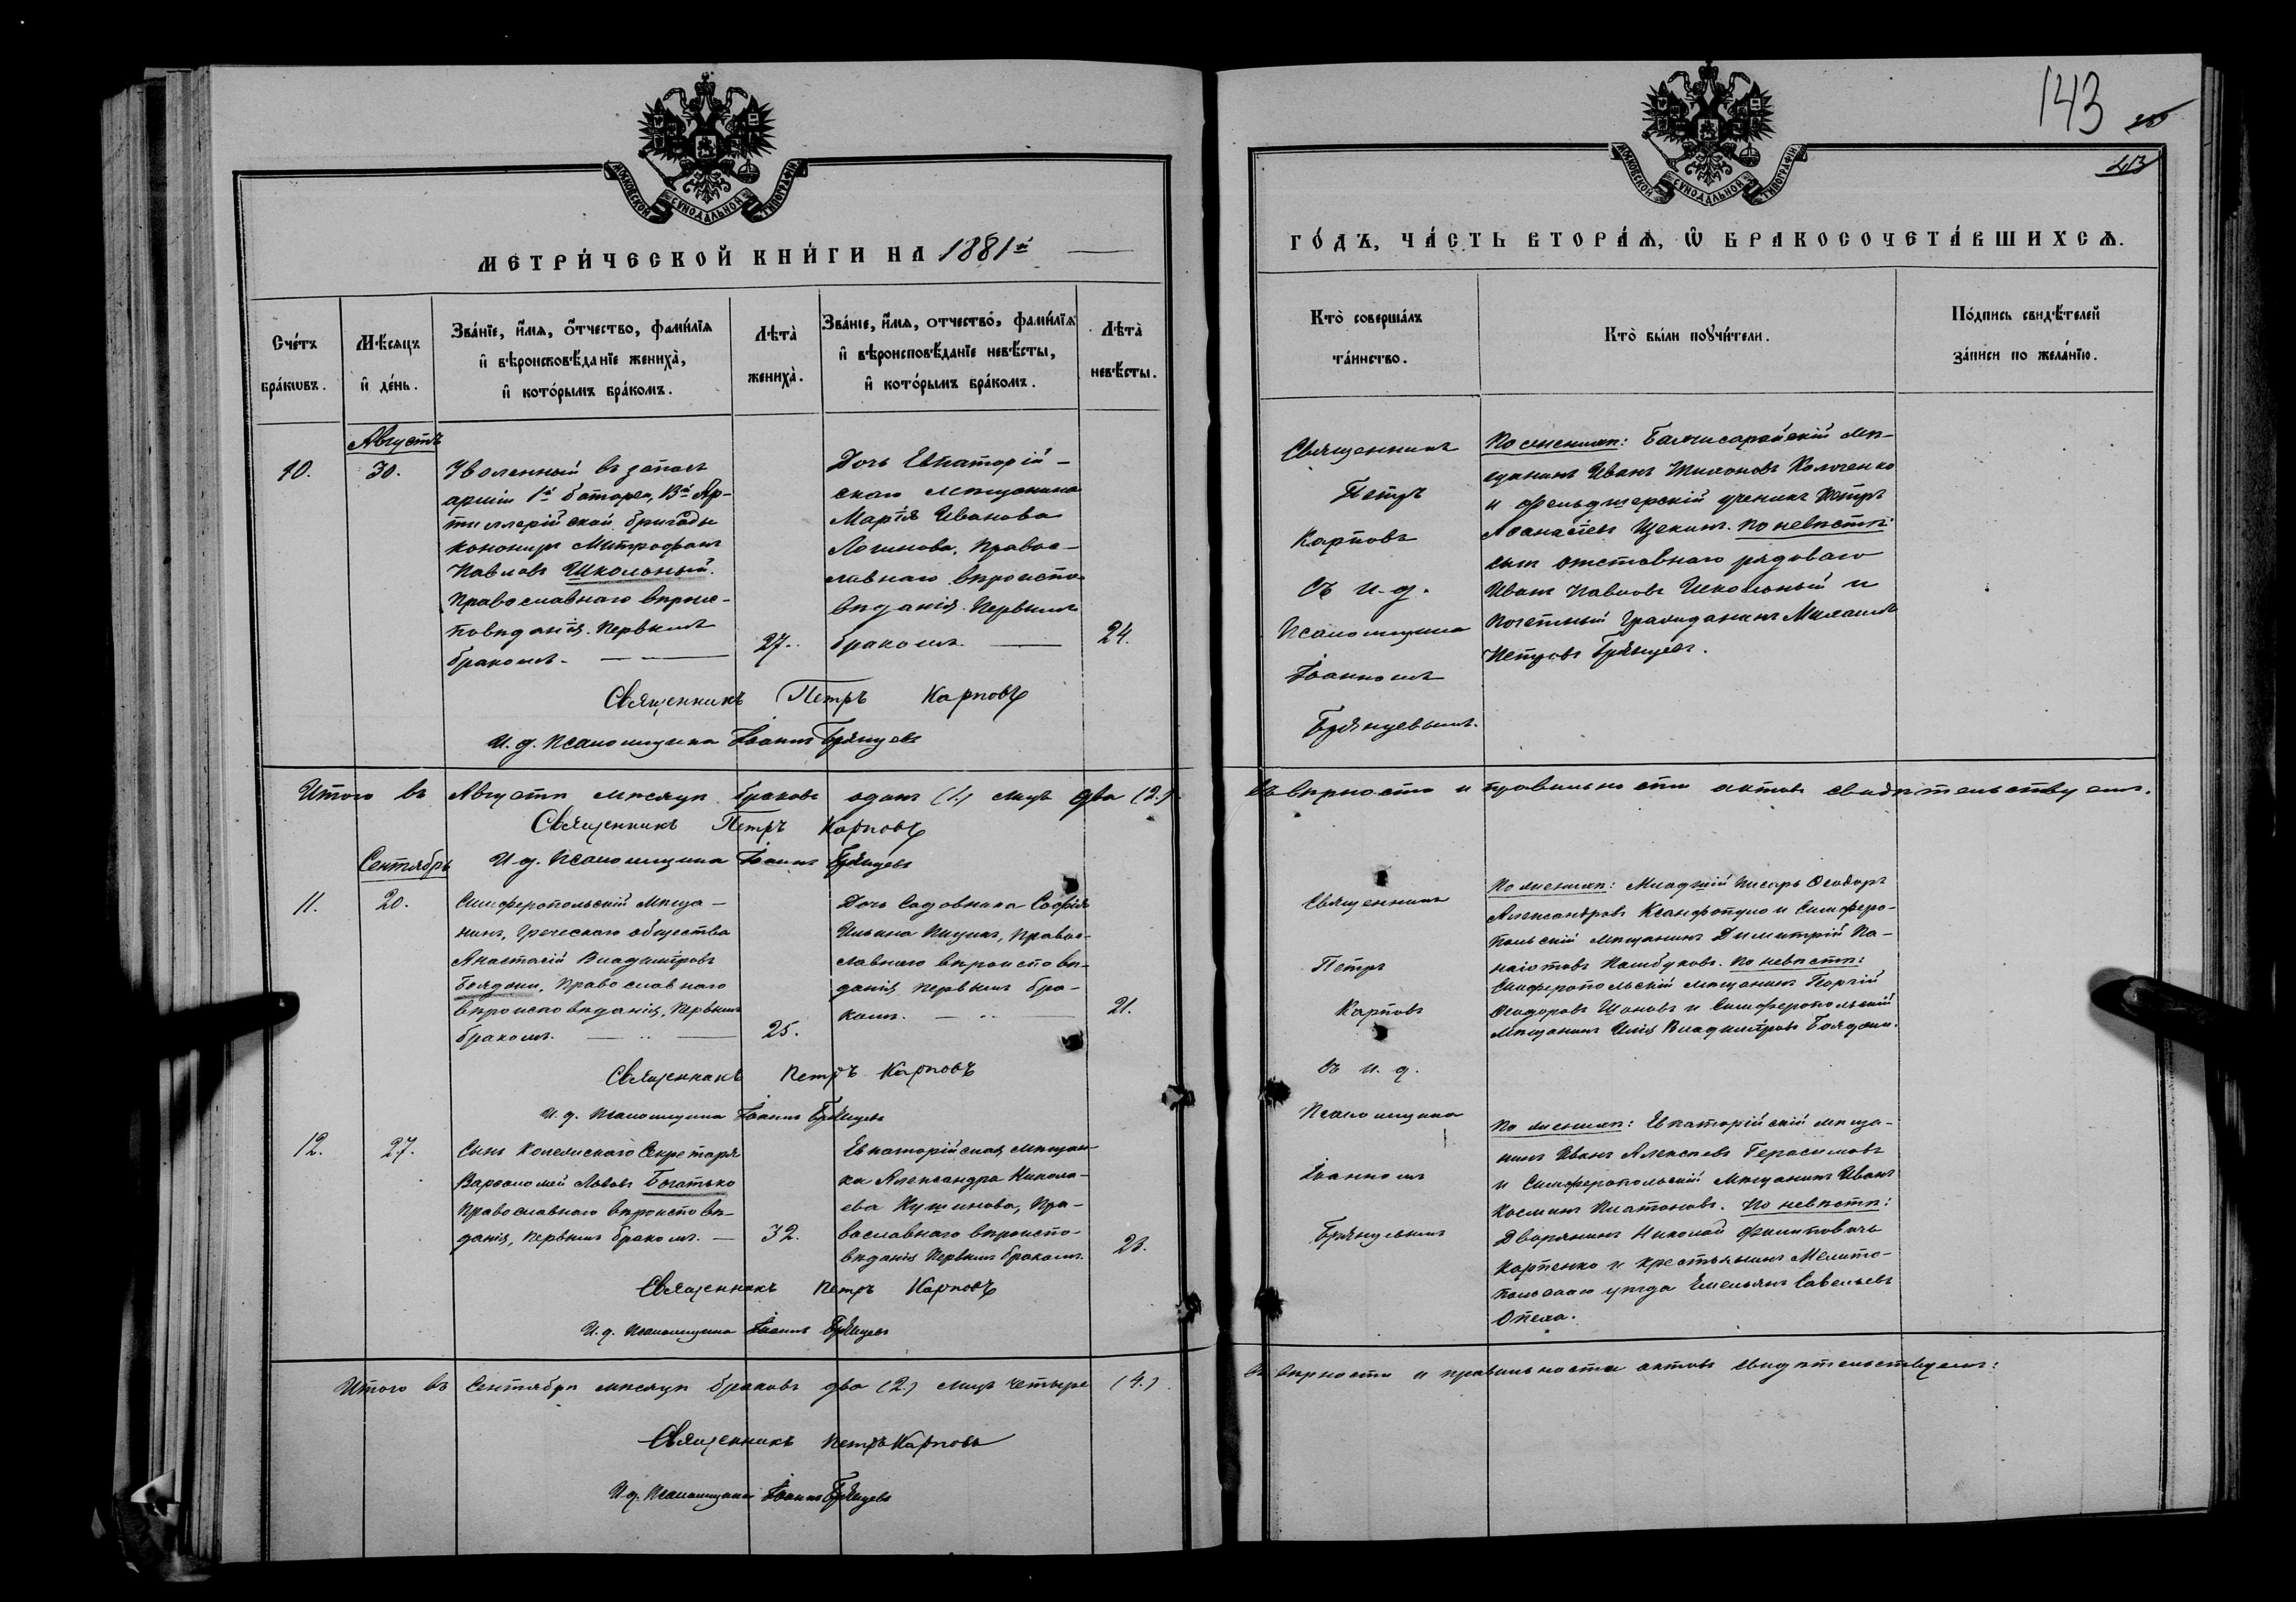 МОСКОВСКОЙ СѴНОДАЛЬНОЙ ТИПОГРАФІИ
МЕТРИ́ЧЕСКОЙ КНИ́ГИ НА 1881й
Сче́тъ бра́кωвъ.
Мѣ́сяцъ и҆ де́нь.
Зва́нїе, и҆́мя, ѻ҆́тчество, фами́лїя
и҆ вѣроисповѣ́данїе жениха̀,
и҆ кото́рымъ бра́комъ.
Лѣта̀ жениха̀.
Зва́нїе, и҆́мя, о́тчество, фами́лїя
и҆ вѣроисповѣ́данїе невѣ́сты,
и҆ кото́рымъ бра́комъ.
Лѣта̀ невѣ́сты.
Августъ
10.
30.
Уволенный въ запасъ
арміи 1й батареи, 13й Ар-
тиллерійской бригады
канониръ Митрофанъ
Павловъ Школьный.
Православнаго вѣроис-
повѣданія. Первымъ
бракомъ.
27.
Дочь Евпаторій-
скаго мѣщанина
Марія Иванова
Логинова, Правос-
лавнаго вѣроиспо-
вѣданія. Первымъ
бракомъ.
24.
Священникъ Петръ Карповъ
И. д. Псаломщика Іоаннъ Брянцевъ
Итого въ Августѣ мѣсяцѣ браковъ одинъ (1.) лицъ два (2.)
Священникъ Петръ Карповъ
И. д. Псаломщика Іоаннъ Брянцевъ
Сентябрь
11.
20.
Симферопольскій мѣща-
нинъ, Греческаго общества
Анастасій Владиміровъ
Бояджи, Православнаго
вѣроисповѣданія, Первымъ
бракомъ.
25.
Дочь Садовника Софія
Ильина Пицикъ, Правос-
лавнаго вѣроисповѣ-
данія Первымъ бра-
комъ.
21.
Священникъ Петръ Карповъ
И. д. Псаломщика Іоаннъ Брянцевъ
12.
27.
Сынъ Колежскаго Секретаря
Варфоломей Львовъ Богатько
Православнаго вѣроисповѣ-
данія, Первымъ бракомъ.
32.
Евпаторійская мѣщан-
ка Александра Никола-
ева Кушинова, Пра-
вославнаго вѣроиспо-
вѣданія Первымъ бракомъ.
23.
Священникъ Петръ Карповъ
И. д. Псаломщика Іоаннъ Брянцевъ
Итого въ Сентябрѣ мѣсяцѣ браковъ два (2.) лицъ четыре (4.)
Священникъ Петръ Карповъ
И. д. Псаломщика Іоаннъ Брянцевъ
143
МОСКОВСКОЙ СѴНОДАЛЬНОЙ ТИПОГРАФІИ
ГО́ДЪ, ЧА́СТЬ ВТОРА́Я, Ѡ҆ БРАКОСОЧЕТА́ВШИХСЯ.
Кто̀ соверша́лъ та́инство.
Кто̀ бы́ли поꙋчи́тели.
По́дпись свидѣ́телей за́писи по жела́нїю.
Священникъ
Петръ
Карповъ
Съ и. д.
Псаломщика
Іоанномъ
Брянцевымъ.
По женихѣ: Бахчисарайскій мѣ-
щанинъ Иванъ Тихоновъ
и фельдшерскій ученикъ Петръ
Аѳанасіевъ Щекинъ. По невѣстѣ:
сынъ отставнаго рядоваго
Иванъ Павловъ Школьный и
Почетный Гражданинъ Михаилъ
Петровъ Брянцевъ.
Въ вѣрности и правильности актовъ свидѣтельствуемъ.
Священникъ
Петръ
Карповъ
Съ и. д.
Псаломщика
Іоанномъ
Брянцевымъ
По женихѣ: Младшій Писарь Ѳеодоръ
Александровъ Ксанфопуло и Симферо-
польскій мѣщанинъ Димитрій Па-
наіотовъ Памбуковъ. По невѣстѣ:
Симферопольскій мѣщанинъ Георгій
Ѳеодоровъ и Симферопольскій
Мѣщанинъ Илія Владиміровъ Бояджи.
По женихѣ: Евпаторійскій мѣща-
нинъ Иванъ Алексѣевъ Герасимовъ
и Симферопольскій мѣщанинъ Иванъ
Косминъ Платоновъ. По невѣстѣ:
Дворянинъ Николай Филиповичъ
Карпенко и крестьянинъ Мелито-
польскаго уѣзда Емельянъ Савельевъ
Опеха.
Въ вѣрности и правильности актовъ свидѣтельствуемъ: